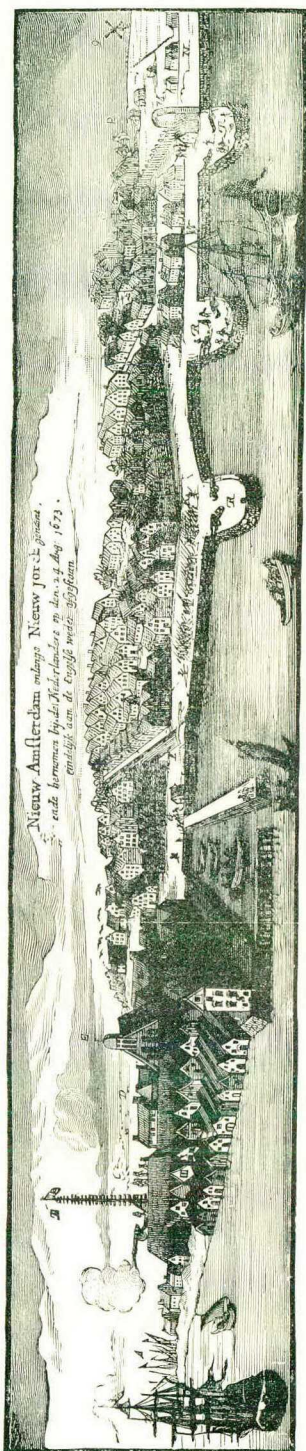 Nieuw Amsterdam onlangs Nieuw jorck genamt,
ende hernomen bij de Nederlanders op den 24 Aug 1673.
eindelijk aan de Engelse weder afgestaan